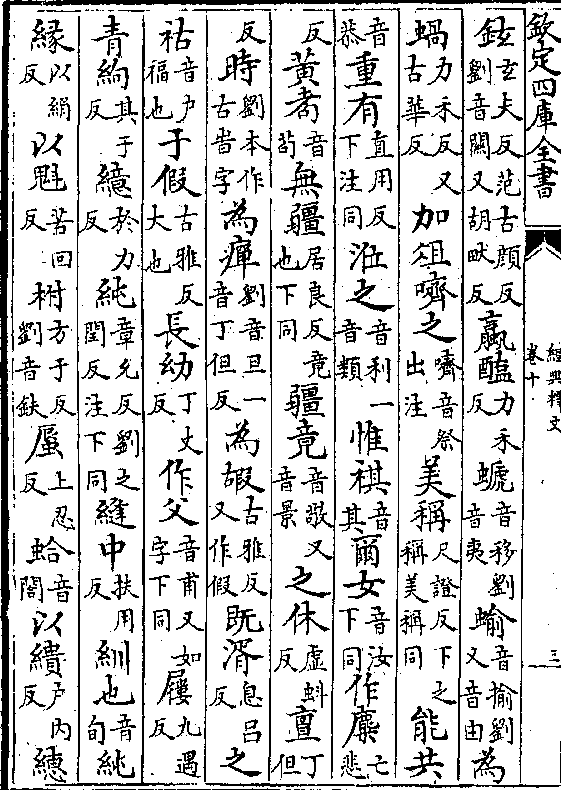 欽定四庫全書
經典釋文
卷十
三
鉉玄犬反范古顔反劉音關又胡畎反蠃醢力禾反螔音移劉音夷蝓音揄劉又音由為
蝸力禾反又古華反加俎嚌之嚌音祭出注美稱尺證反下之稱美稱同能共
音恭重有直用反下注同涖之音利一音類惟祺音其爾女音汝下同作麋亡悲
反黃耇音苟無疆居良反竟也下同疆竟音敬又音景之休虛蚪反亶丁但
反時劉本作古旹字為癉劉音旦一音丁但反為嘏古雅反又作假既湑息吕反之
祜音户福也于假古雅反大也長幼丁丈反作父音甫又如字下同屨九遇反
青絇其于反繶於力反純章允反劉之閏反注下同縫中扶用反紃也音旬純
緣以絹反以魁苦回反柎方于反劉音鈇蜃上忍反蛤音閤以繢户内反繐